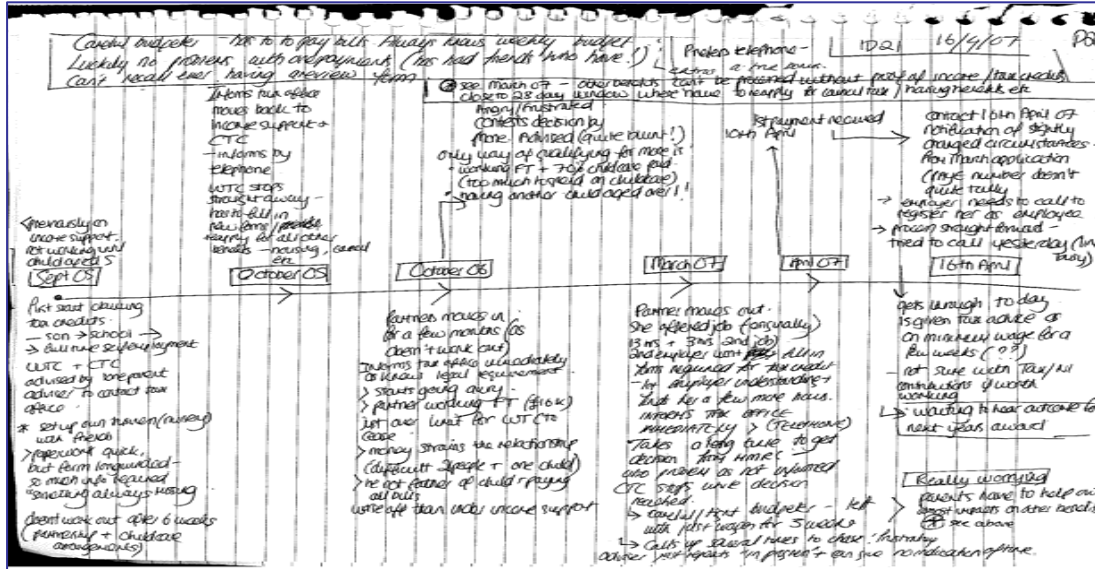 Careful budgeter - has to to pay bills. Always knows weekly budget
Luckily no problems with overpayment (has had friends who have!)
Can't recall ever having a review form
Prefers telephone -
ID21
16/4/07
see March 07 - other benefits can't be processed without proof of income / tax credits
close to 28 day window where have to reapply for council tax / housing benefits etc
Informs tax office
moves back to
income support +
CTC
- informs by
telephone
WTC stops
straight away -
has to fill in
new forms /
reapply for all other
benefits - housing, council
etc
Angry/frustrated
contests decision by
phone. Advised (quite blunt!)
only way of qualifying for more is
working FT + 70% childcare paid
(too much to spend on childcare)
having another child aged over 1!
1st payment received
10th April
contact 10th April 07
notification of slightly
changed circumstances -
from March application
(PAYE number doesn't
quite tally
→ employer needs to call to
register her as employee
→ process straight forward -
tried to call yesterday (line
busy)
Previously on
income support,
not working until
child aged 5
Sept 05
October 05
October 06
March 07
April 07
16th April
First start claiming
tax credits.
- son → school →
→ full time self employment
WTC + CTC
advised by lone parent
adviser to contact tax
office.
* set up own (nursery)
with friends
> paperwork quick,
but form longwinded -
so much info required
"something always missing"
doesn't work out after 6 weeks
(partnership + childcare
arrangements)
Partner moves in
for a few months (as
doesn't work out)
Informs tax office immediately
as knows legal requirement
> starts going awry.
> partner working FT (£16k)
just over limit for WTC to
cease
> money strains the relationship
(difficult 2 people + one child)
> he not father of child + paying
all bills
worse off than under income support
Partner moves out.
She offered job (originally)
13 hrs + 3 hrs 2nd job)
2nd employer won't fill in
forms required for tax credit
- 1st employer understanding +
finds her a few more hours.
INFORMS TAX OFFICE
IMMEDIATELY > (TELEPHONE)
Takes a long time to get
decision from HMRC -
who problem as not informed
CTC stops until decision
reached.
↳ careful / tight budgeter - left
with just wages for 5 weeks
↳ Calls up several times to chase: frustrating
adviser just repeats "in process" + can give no indication of time.
gets through to day
is given tax advice as
on minimum wage for a
few weeks (??)
- not sure with Tax/NI
contributions if worth
working
↳ waiting to hear outcome for
next years award
Really worrying
parents have to help out
impacts on other benefits
* see above